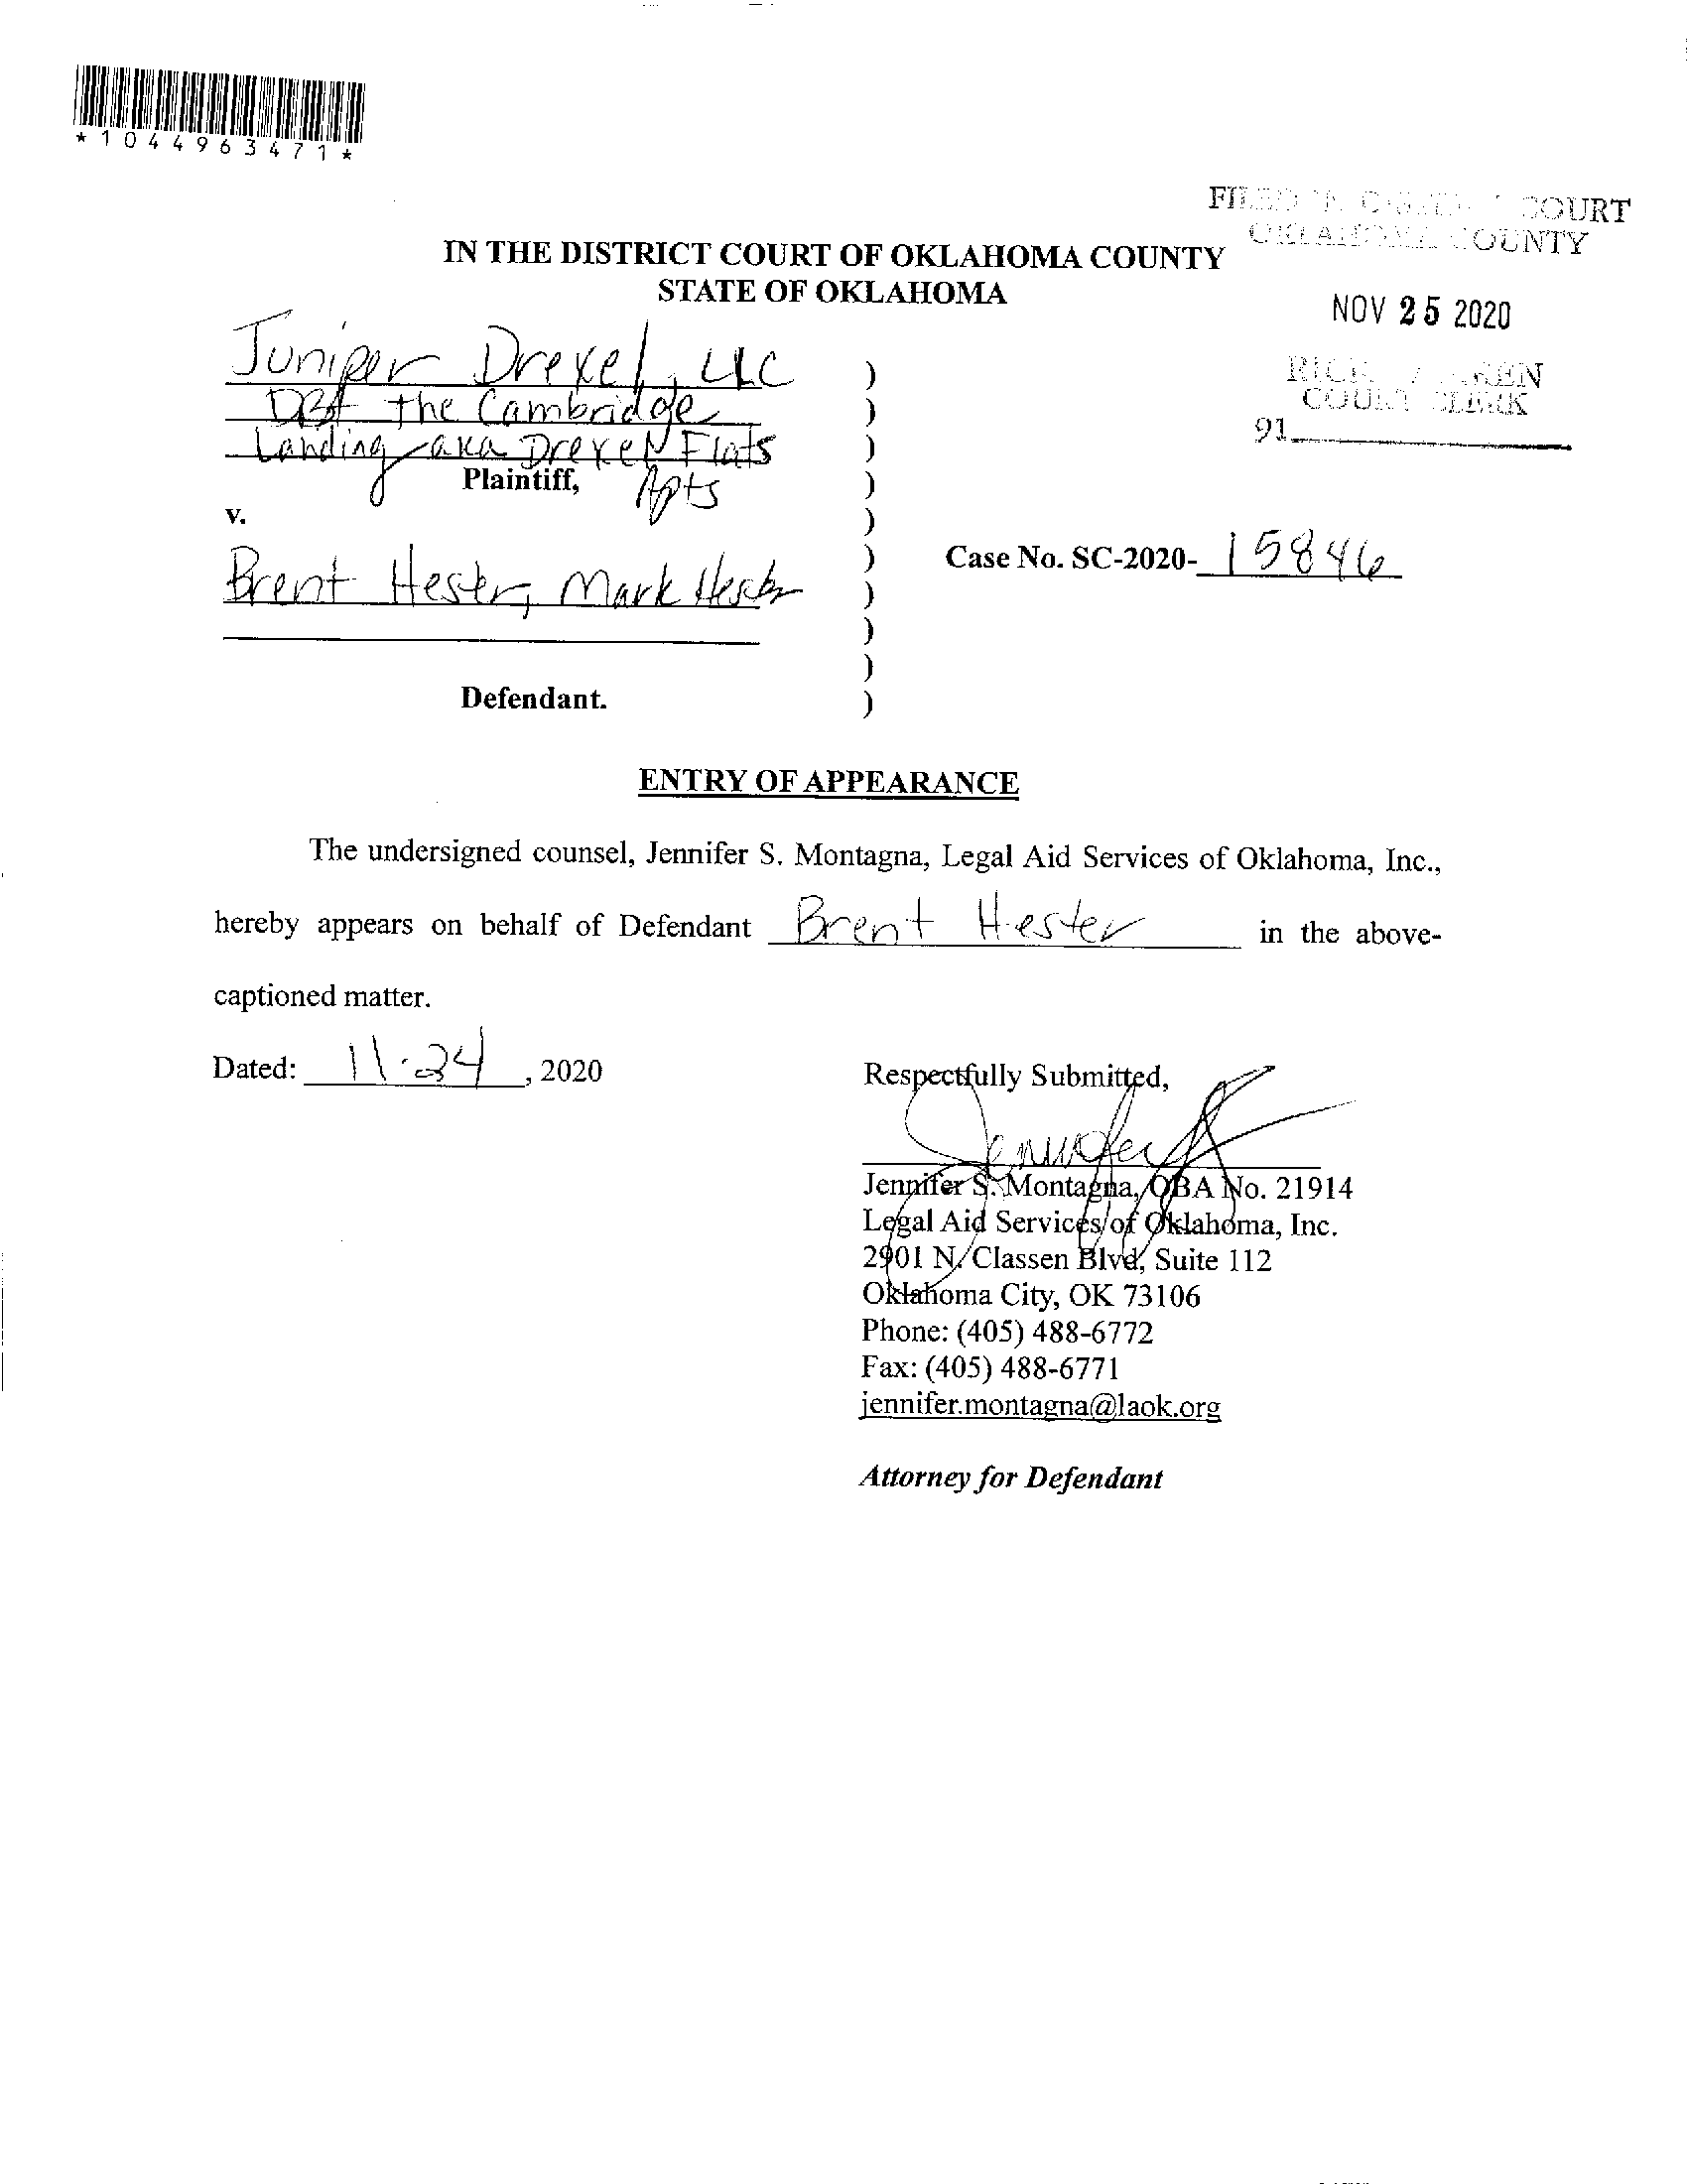 *1044963471*
COURT
COUNTY
IN THE DISTRICT COURT OF OKLAHOMA COUNTY
STATE OF OKLAHOMA
NOV 25 2020
COURT CLERK
91
Juniper Drexel, LLC )
DBA The Cambridge )
Landing aka Drexel Flats )
Plaintiff, Apts )
v. )
Brent Hester, Mark Hester ) Case No. SC-2020- 15846
)
)
)
Defendant. )
ENTRY OF APPEARANCE
The undersigned counsel, Jennifer S. Montagna, Legal Aid Services of Oklahoma, Inc.,
hereby appears on behalf of Defendant Brent Hester in the above-
captioned matter.
Dated: 11-24, 2020
Respectfully Submitted,
Jennifer S. Montagna, OBA No. 21914
Legal Aid Services of Oklahoma, Inc.
2901 N. Classen Blvd, Suite 112
Oklahoma City, OK 73106
Phone: (405) 488-6772
Fax: (405) 488-6771
jennifer.montagna@laok.org
Attorney for Defendant